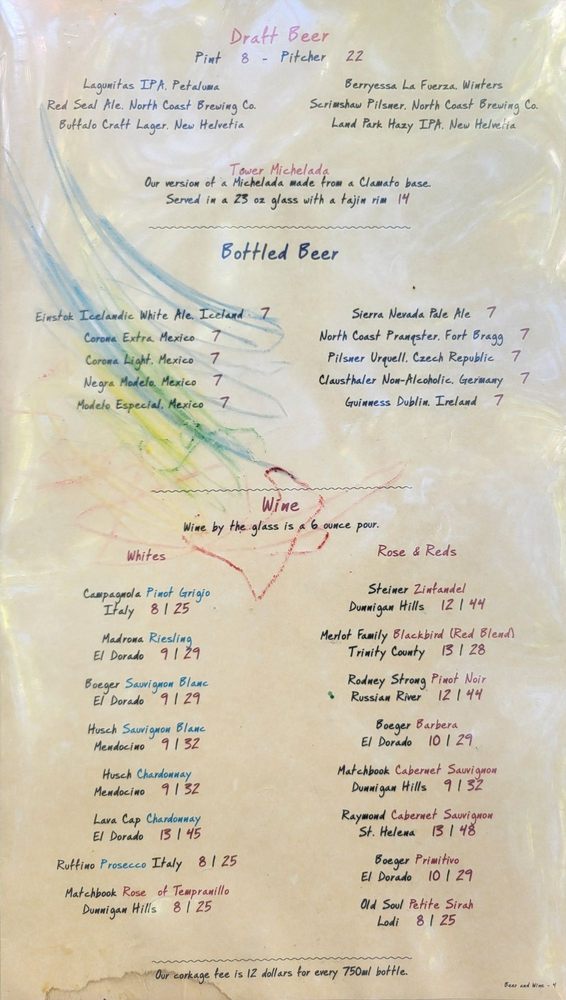 Draft Beer
Pint 8 - Pitcher 22
Lagunitas IPA. Petaluma
Red Seal Ale. North Coast Brewing Co.
Buffalo Craft Lager. New Helvetia
Berryessa La Fuerza. Winters
Scrimshaw Pilsner. North Coast Brewing Co.
Land Park Hazy IPA. New Helvetia
Tower Michelada
Our version of a Michelada made from a Clamato base.
Served in a 23 oz glass with a tajin rim 14
Bottled Beer
Einstok Icelandic White Ale. Iceland 7
Corona Extra. Mexico 7
Corona Light. Mexico 7
Negra Modelo. Mexico 7
Modelo Especial. Mexico 7
Sierra Nevada Pale Ale 7
North Coast Pranqster. Fort Bragg 7
Pilsner Urquell. Czech Republic 7
Clausthaler Non-Alcoholic. Germany 7
Guinness Dublin. Ireland 7
Wine
Wine by the glass is a 6 ounce pour.
Whites
Campagnola Pinot Grigio
Italy 8 | 25
Madrona Riesling
El Dorado 9 | 29
Boeger Sauvignon Blanc
El Dorado 9 | 29
Husch Sauvignon Blanc
Mendocino 9 | 32
Husch Chardonnay
Mendocino 9 | 32
Lava Cap Chardonnay
El Dorado 13 | 45
Ruffino Prosecco Italy 8 | 25
Matchbook Rose of Tempranillo
Dunnigan Hills 8 | 25
Rose & Reds
Steiner Zinfandel
Dunnigan Hills 12 | 44
Merlot Family Blackbird (Red Blend)
Trinity County 13 | 28
Rodney Strong Pinot Noir
Russian River 12 | 44
Boeger Barbera
El Dorado 10 | 29
Matchbook Cabernet Sauvignon
Dunnigan Hills 9 | 32
Raymond Cabernet Sauvignon
St. Helena 13 | 48
Boeger Primitivo
El Dorado 10 | 29
Old Soul Petite Sirah
Lodi 8 | 25
Our corkage fee is 12 dollars for every 750ml bottle.
Beer and Wine - 4